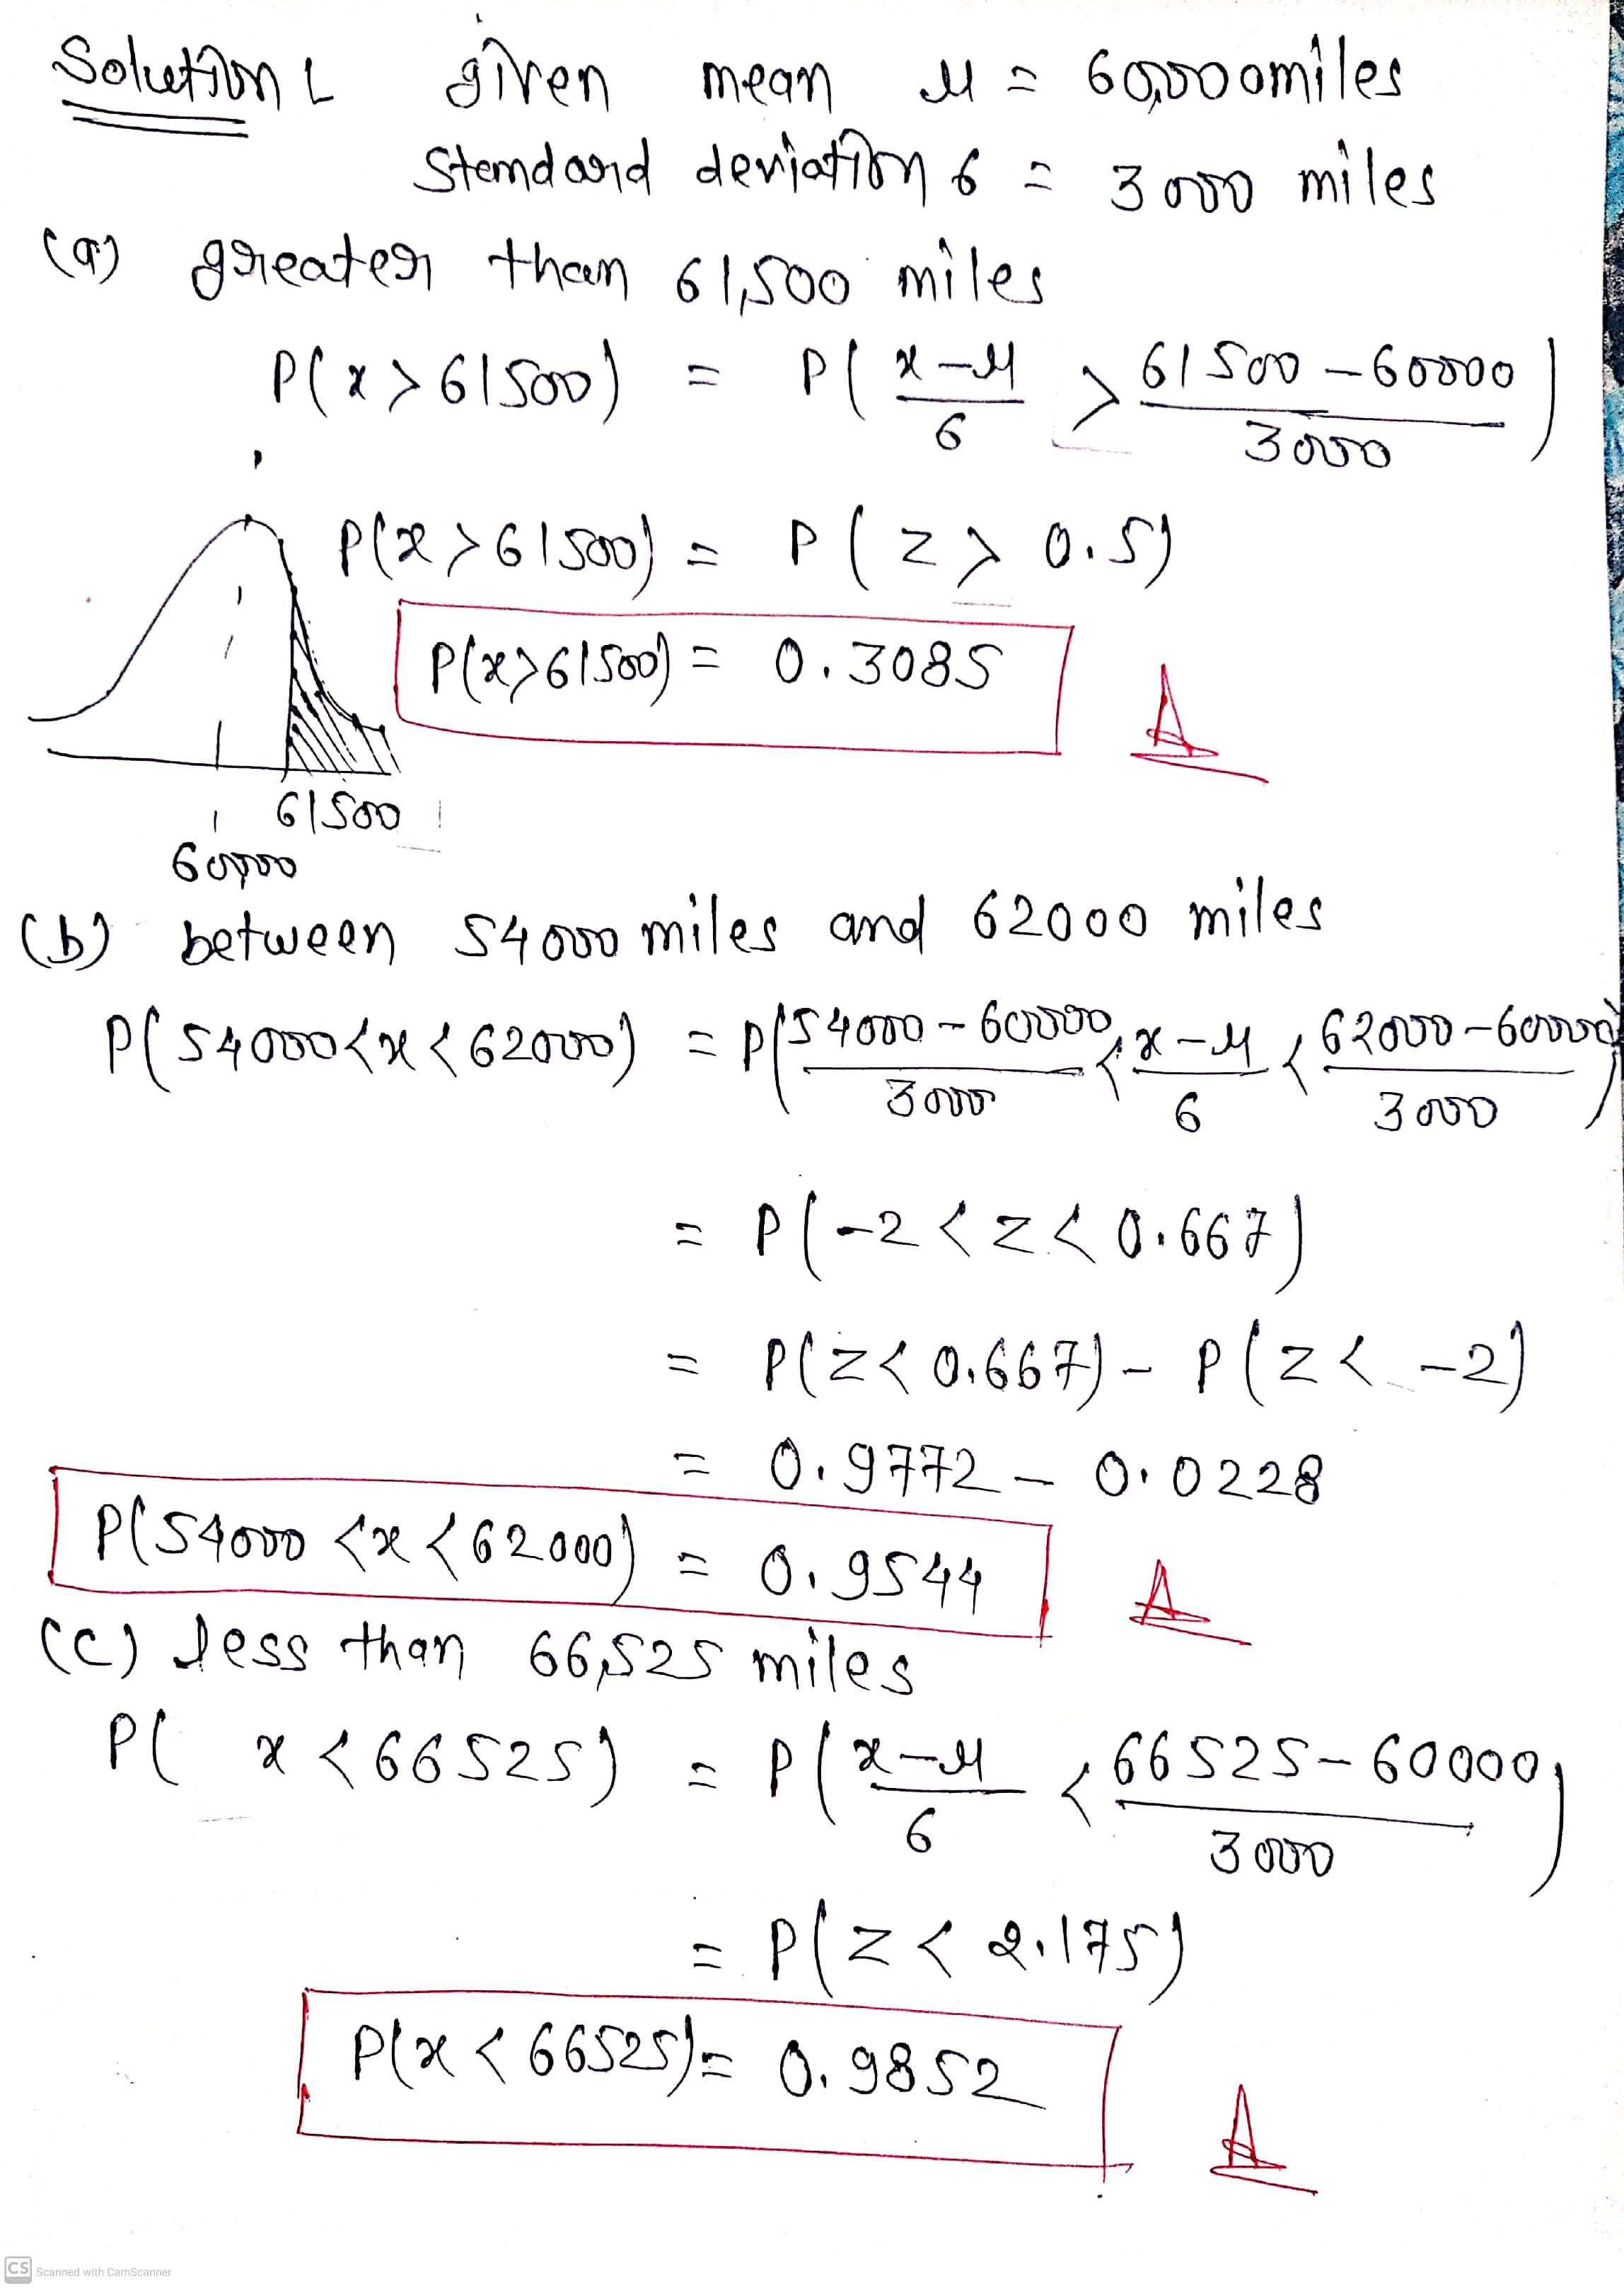 Solution: given mean μ = 60,000 miles
Standard deviation σ = 3000 miles
(a) greater than 61,500 miles
P(x > 61500) = P( x-μ / σ > 61500-60000 / 3000 )
P(x > 61500) = P( z > 0.5)
P(x > 61500) = 0.3085
61500
60,000
(b) between 54000 miles and 62000 miles
P( 54000 < x < 62000 ) = P( 54000-60000 / 3000 < x-μ / σ < 62000-60000 / 3000 )
= P( -2 < z < 0.667 )
= P( z < 0.667) - P( z < -2 )
= 0.9772 - 0.0228
P(54000 < x < 62000) = 0.9544
(c) less than 66,525 miles
P( x < 66525 ) = P( x-μ / σ < 66525-60000 / 3000 )
= P( z < 2.175 )
P(x < 66525) = 0.9852
CS Scanned with CamScanner